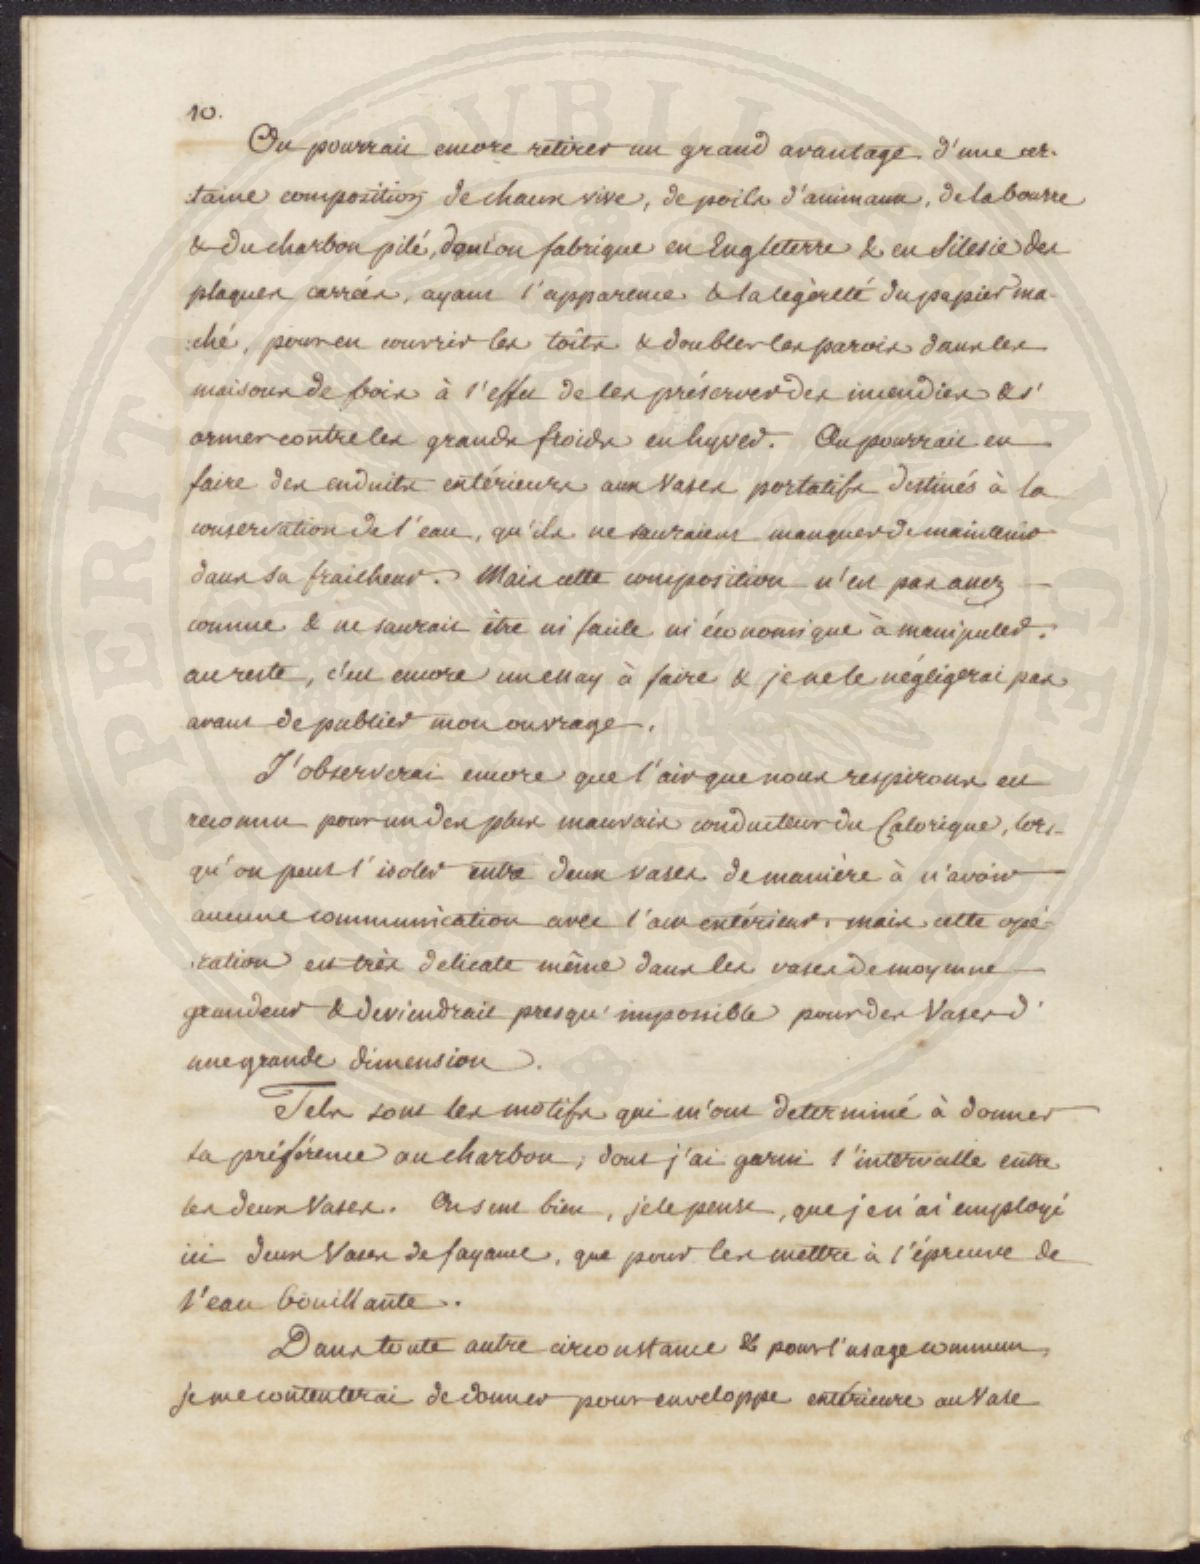 10.
On pourrait encore retirer un grand avantage d'une cer-
:taine composition de chaux vive, de poils d'animaux, de la bourre
& du charbon pilé, dont on fabrique en Engleterre & en Silesie des
plaques carrées, ayant l'apparence & la légèreté du papier ma-
:ché, pour en couvrir les toîts & doubler les parois dans les
maisons de bois à l'effet de les préserver des incendies & s'
armer contre les grands froids en hyver. On pourrait en
faire des enduits extérieurs aux Vases portatifs destinés à la
conservation de l'eau, qu'ils ne sauraient manquer de maintenir
dans sa fraicheur. Mais cette composition n'est pas assez
connue & ne saurait être ni facile ni économique à manipuler.
au reste, c'est encore un essay à faire & je ne le négligerai pas
avant de publier mon ouvrage.
J'observerai encore que l'air que nous respirons est
reconnu pour un des plus mauvais conducteur du Calorique, lors-
qu'on peut l'isoler entre deux vases de manière à n'avoir
aucune communication avec l'air extérieur. mais cette opé-
:ration est très delicate même dans les vases de moyenne
grandeur & deviendrait presqu'impossible pour des Vases d'
une grande dimension.
Tels sont les motifs qui m'ont determiné à donner
la préférence au charbon, dont j'ai garni l'intervalle entre
les deux Vases. On sent bien, je le pense, que je n'ai employé
ici deux Vases de fayance, que pour les mettre à l'épreuve de
l'eau bouillante.
Dans toute autre circonstance & pour l'usage commun,
je me contenterai de donner pour enveloppe extérieure au Vase
SPERITAT PUBLIC